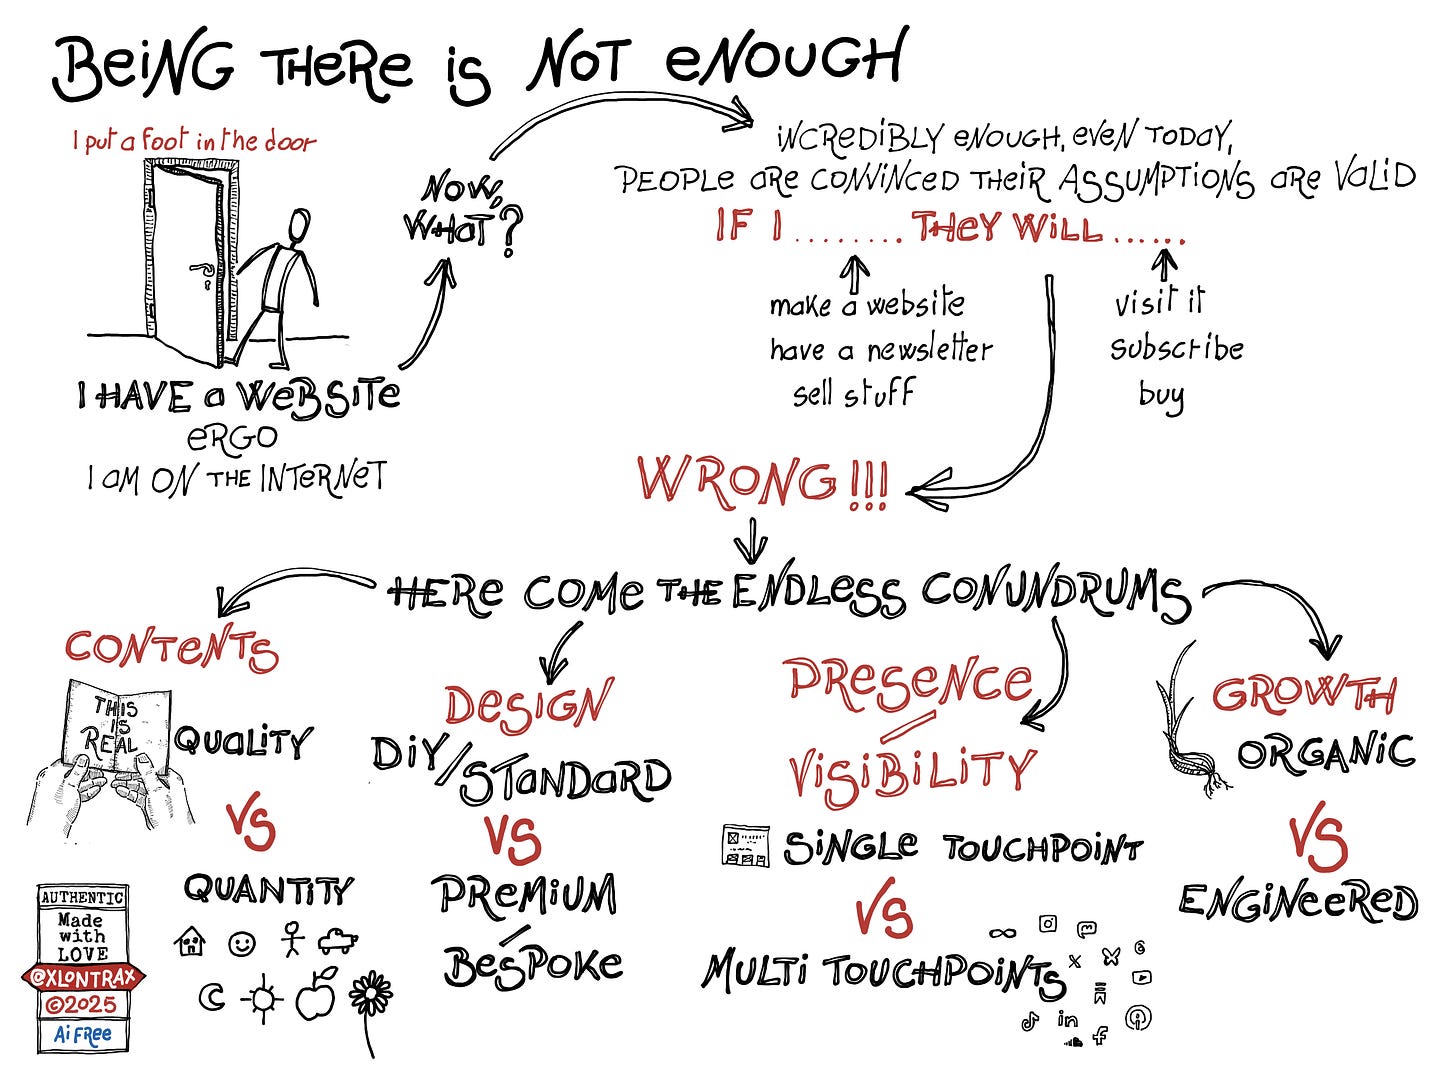 BeiNG THeRe is NOT eNOUGH
I put a foot in the door
NOW,
WHaT?
I HAVE a WeBSiTe
eRGO
I aM ON THE INTeRNeT
iNCReDiBLY eNOUGH, eVeN TODaY,
PEOPLe aRe CONViNCeD THeiR ASSUMPTiONS aRe VaLiD
IF I ........ THeY WiLL ......
make a website
have a newsletter
sell stuff
visit it
subscribe
buy
WRONG!!!
HERe COMe THE ENDLeSS CONUNDRUMS
CONTeNTS
THIS
IS
REAL
QUaLiTY
VS
QUANTiTY
DeSiGN
DiY/STaNDaRD
VS
PReMiUM
/
BeSPOKe
PReSeNCe
/
ViSiBiLiTY
SiNGLe TOUCHPOiNT
VS
MULTi TOUCHPOiNTS
GROWTH
ORGANiC
VS
ENGiNeeReD
AUTHENTIC
Made
with
LOVE
@XLONTRAX
©2025
Ai FRee